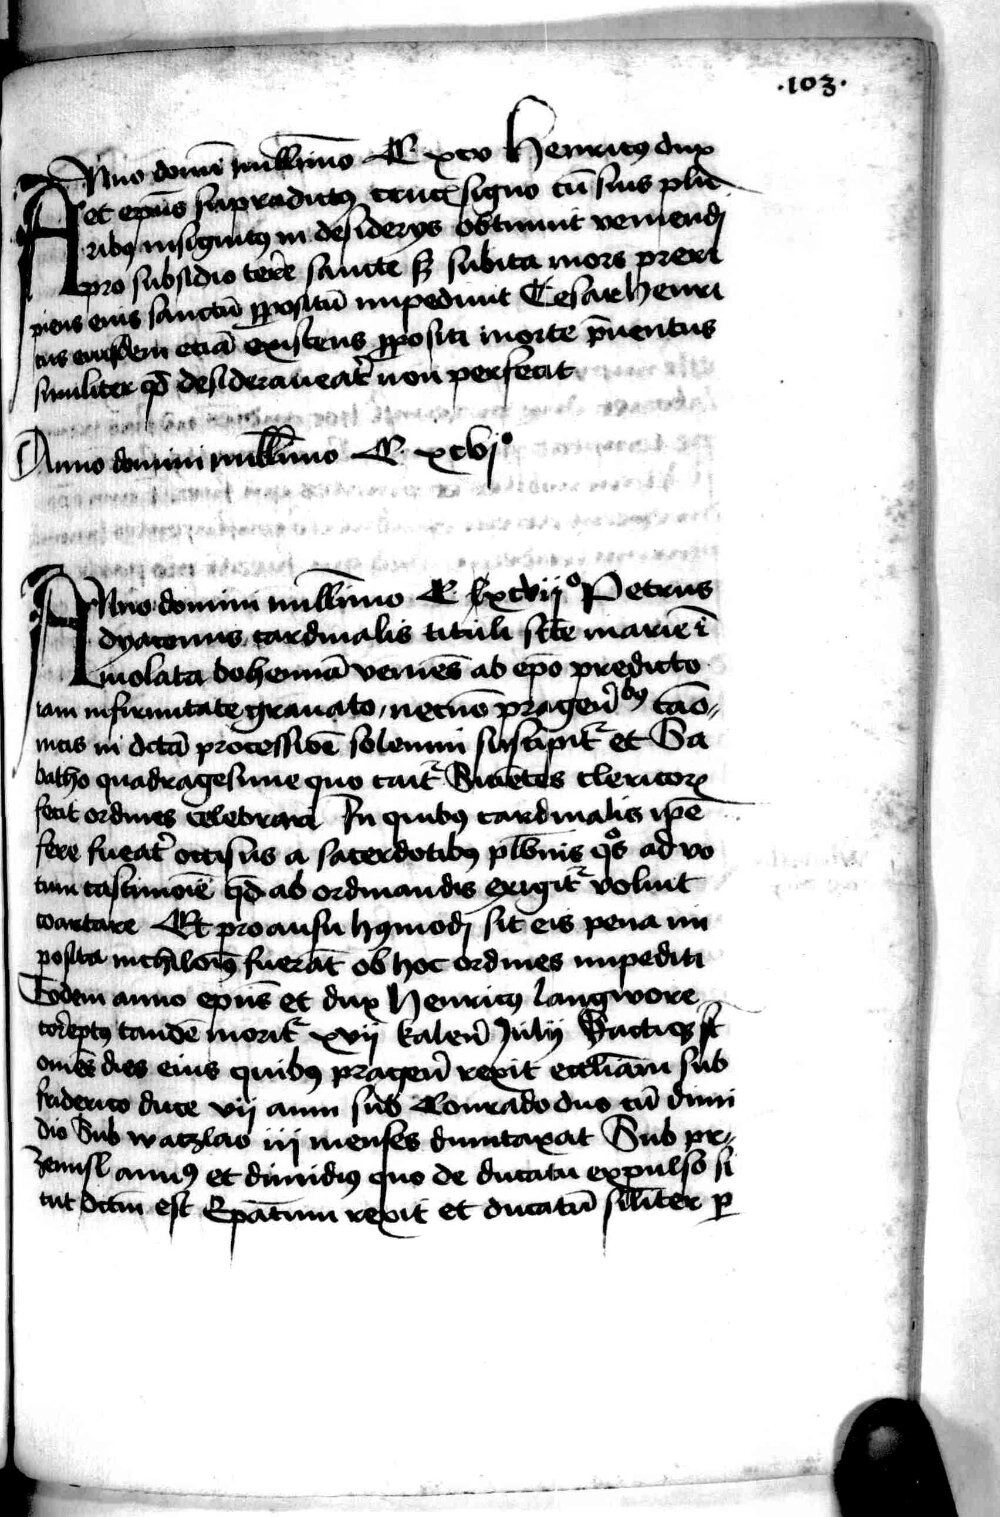 ·103·
Anno domi millimo C xcv Henricus dux
et epus supradictus crucis signo cu suis plu
ribus insignitus in desiderys obtinuit veniendi
pro subsidio terre sancte s3 subita mors preri
piens eius sanctu ppositu impediuit Cesar henri
cus eiusdem etia existens ppositi morte puentus
similiter qd desiderauerat non perfecit
Anno domini millimo C. xcvjº
Anno domini millimo C lxcvijº Petrus
dyaconus cardinalis tituli scte marie i
violata bohemia venies ab epo predicto
iam infirmitate grauato, necno pragen bus cano,
nicis in dcta processione solemni suscipitr et Sa
batho quadragesime quo canitr Sicientes clericorum
fecit ordines celebrari In quibus cardinalis ipse
fere fuerat occisus a sacerdotibus plebanis qos ad vo
tum castimonie qd ab ordinandis exigitr voluit
coartare Et pro ausu hujmodi sit eis pena im
posita nichilominus fuerat ob hoc ordines impediti
Eodem anno epus et dux Henricus langwore
correptus tande moritr xvij kalen Julij
omes dies eius quibus pragen rexit eccliam sub
friderico duce vij anni sub Conrado duo cu dimi
dio Sub watzlao iij menses dumtaxat Sub pr,
zemisl annus et dimidius quo de ducatu expulso si
cut dctm est Epatum rexit et ducatu siliter p